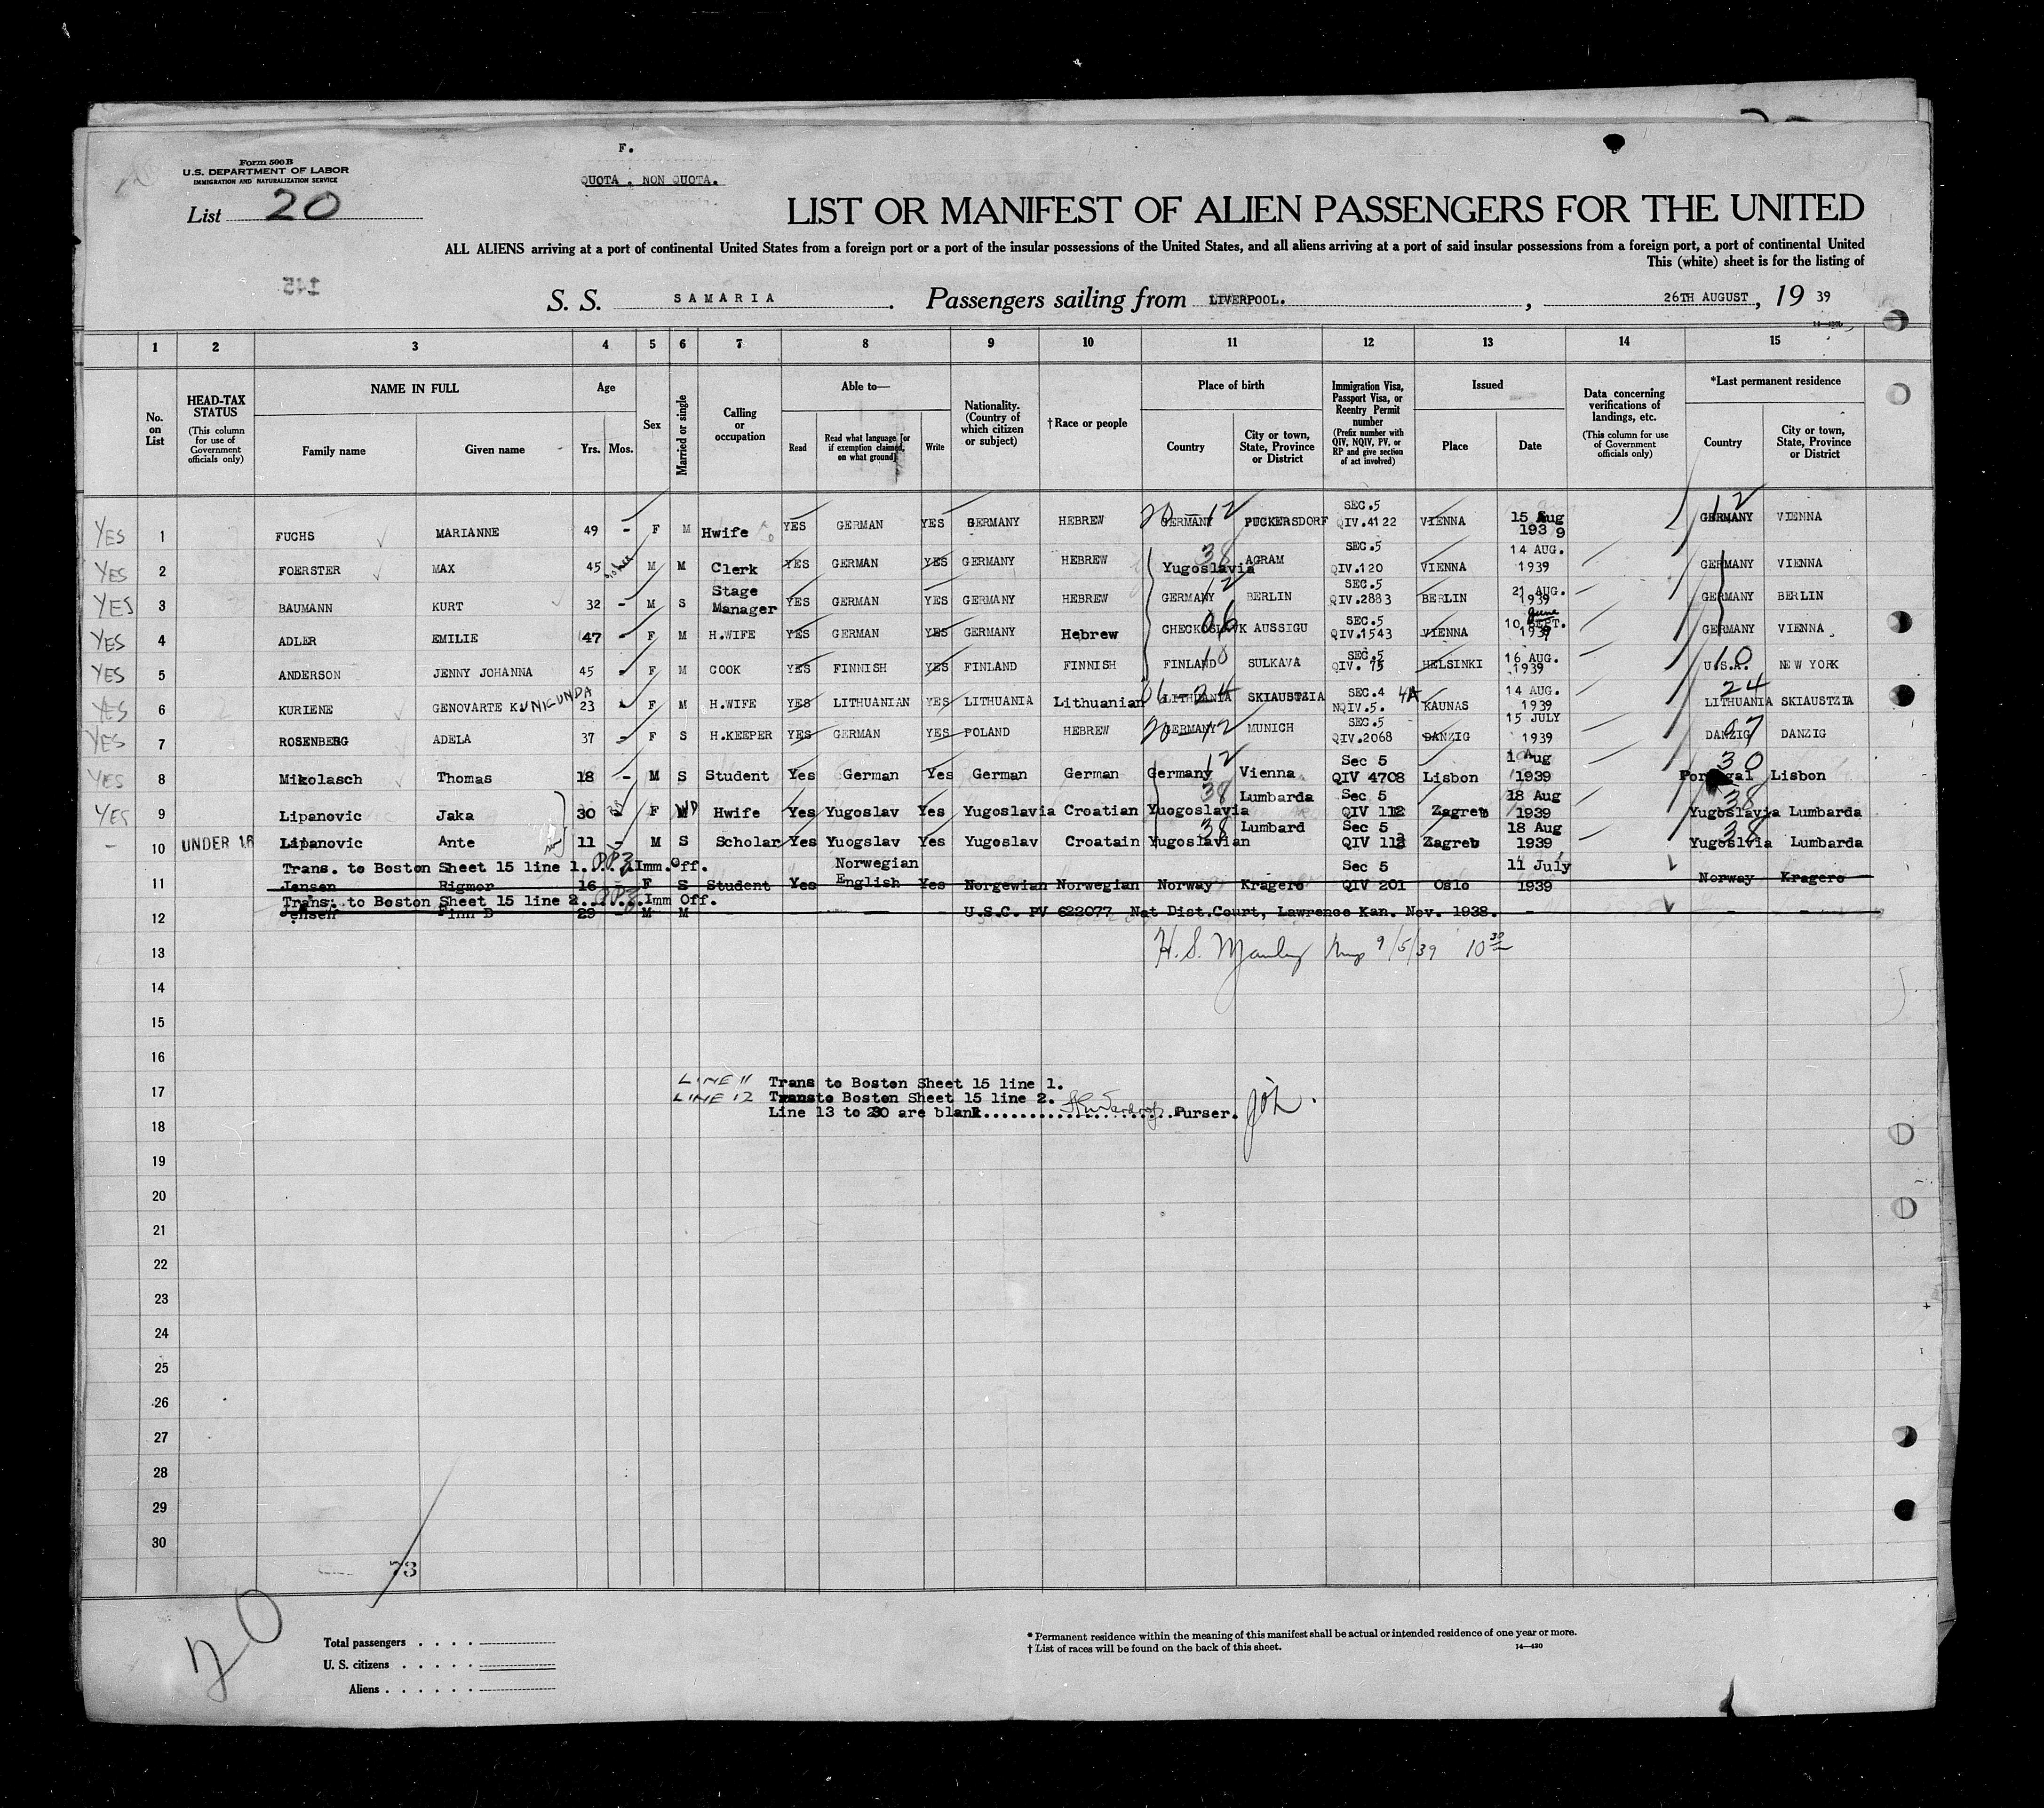 F.
Form 500 B
U.S. DEPARTMENT OF LABOR
IMMIGRATION AND NATURALIZATION SERVICE
QUOTA . NON QUOTA.
List 20
LIST OR MANIFEST OF ALIEN PASSENGERS FOR THE UNITED
ALL ALIENS arriving at a port of continental United States from a foreign port or a port of the insular possessions of the United States, and all aliens arriving at a port of said insular possessions from a foreign port, a port of continental United
This (white) sheet is for the listing of
145
S. S. SAMARIA. Passengers sailing from LIVERPOOL. , 26TH AUGUST, 19 39
1 2 3 4 5 6 7 8 9 10 11 12 13 14 15
No. on List
HEAD-TAX STATUS (This column for use of Government officials only)
NAME IN FULL
Family name Given name
Age
Yrs. Mos.
Sex
Married or single
Calling or occupation
Able to—
Read
Read what language [or if exemption claimed, on what ground]
Write
Nationality. (Country of which citizen or subject)
†Race or people
Place of birth
Country
City or town, State, Province or District
Immigration Visa, Passport Visa, or Reentry Permit number (Prefix number with QIV, NQIV, PV, or RP and give section of act involved)
Issued
Place Date
Data concerning verifications of landings, etc. (This column for use of Government officials only)
*Last permanent residence
Country
City or town, State, Province or District
YES 1 FUCHS MARIANNE 49 - F M Hwife YES GERMAN YES GERMANY HEBREW 20-12 GERMANY PUCKERSDORF SEC.5 QIV.4122 VIENNA 15 Aug 1939 12 GERMANY VIENNA
YES 2 FOERSTER MAX 45 M M Clerk YES GERMAN YES GERMANY HEBREW 38 Yugoslavia AGRAM SEC.5 QIV.120 VIENNA 14 AUG. 1939 GERMANY VIENNA
YES 3 BAUMANN KURT 32 - M S Stage Manager YES GERMAN YES GERMANY HEBREW 12 GERMANY BERLIN SEC.5 QIV.2883 BERLIN 21 AUG. 1939 GERMANY BERLIN
YES 4 ADLER EMILIE 47 - F M H.WIFE YES GERMAN YES GERMANY Hebrew 06 CHECKOSLAVK AUSSIGU SEC.5 QIV.1543 VIENNA 10 SEPT. June 1939 GERMANY VIENNA
YES 5 ANDERSON JENNY JOHANNA 45 - F M COOK YES FINNISH YES FINLAND FINNISH 10 FINLAND SULKAVA SEC.5 QIV. 75 HELSINKI 16 AUG. 1939 10 U.S.A. NEW YORK
YES 6 KURIENE GENOVARTE KUNIGUNDA 23 - F M H.WIFE YES LITHUANIAN YES LITHUANIA Lithuanian 06-24 LITHUANIA SKIAUSTZIA SEC.4 4A NQIV.5. KAUNAS 14 AUG. 1939 24 LITHUANIA SKIAUSTZIA
YES 7 ROSENBERG ADELA 37 - F S H.KEEPER YES GERMAN YES POLAND HEBREW 20-12 GERMANY MUNICH SEC.5 QIV.2068 DANZIG 15 JULY 1939 07 DANZIG DANZIG
YES 8 Mikolasch Thomas 18 - M S Student Yes German Yes German German 12 Germany Vienna Sec 5 QIV 4708 Lisbon 1 Aug 1939 30 Portugal Lisbon
YES 9 Lipanovic Jaka 30 - F M WD Hwife Yes Yugoslav Yes Yugoslavia Croatian 38 Yuogoslavia Lumbarda Sec 5 QIV 112 Zagreb 18 Aug 1939 38 Yugoslavia Lumbarda
- 10 UNDER 16 Lipanovic Ante 11 - M S Scholar Yes Yuogslav Yes Yugoslav Croatain 38 Yugoslavian Lumbard Sec 5 QIV 113 Zagreb 18 Aug 1939 38 Yugoslvia Lumbarda
Trans. to Boston Sheet 15 line 1. Imm.Off.
11 Jensen Rigmor 16 - F S Student Yes Norwegian English Yes Norgewian Norwegian Norway Kragero Sec 5 QIV 201 Oslo 11 July 1939 Norway Kragero
Trans. to Boston Sheet 15 line 2. Imm Off.
12 Jensen Finn B 29 M M - - - U.S.C. PV 623077 Nat Dist.Court, Lawrence Kan. Nov. 1938. - - -
13 H. S. Manley 9/5/39 10 30
14
15
16
LINE 11 Trans to Boston Sheet 15 line 1.
17
LINE 12 Transto Boston Sheet 15 line 2.
Line 13 to 30 are blank....................Purser.
18
19
20
21
22
23
24
25
26
27
28
29
30
73
20
Total passengers . . . .
U. S. citizens . . . . .
Aliens . . . . . .
* Permanent residence within the meaning of this manifest shall be actual or intended residence of one year or more.
† List of races will be found on the back of this sheet. 14—430